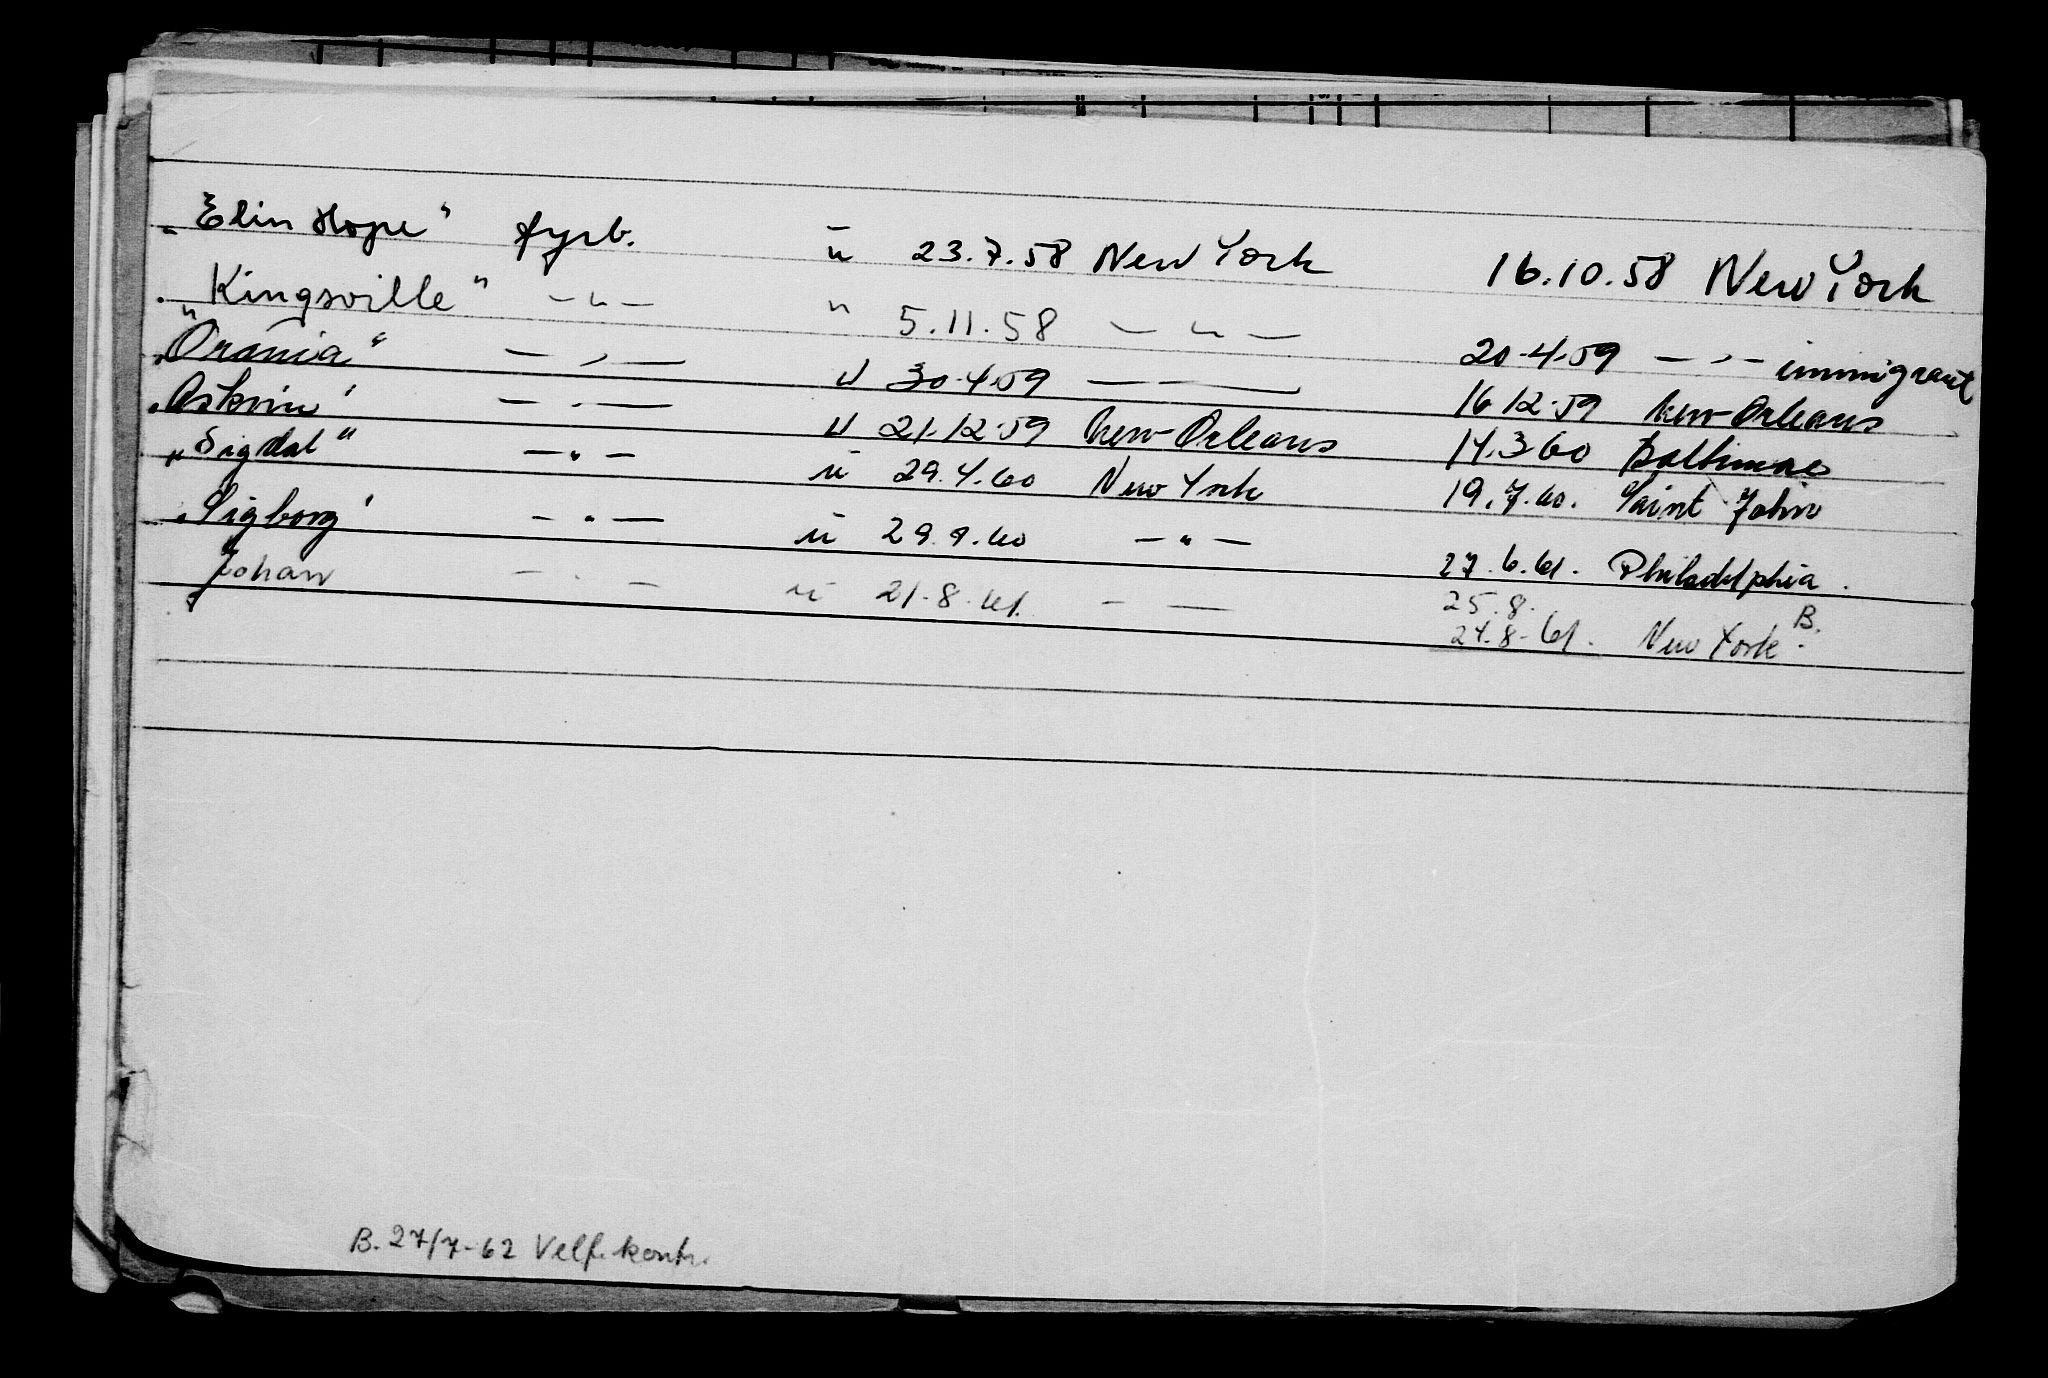 "Elin Hope" fyrb. u 23.7.58 New York 16.10.58 New York
"Kingsville" — " — " 5.11.58 — " — 20.4.59 — " — immigrant
"Orania" — " — u 30.4.59 — — 16 12.59 New-Orleans
"Askvin" — " — u 21.12.59 New-Orleans 14.3 60 Baltimore
"Sigdal" — " — u 29.4.60 New York 19.7.60. Saint John
"Sigborg" — " — u 29.9.60 — " — 27.6.61. Philadelphia.
Johan — " — u 21.8.61. — — 25.8.
24.8-61. New York. B.
B. 27/7-62 Velf.kontr.